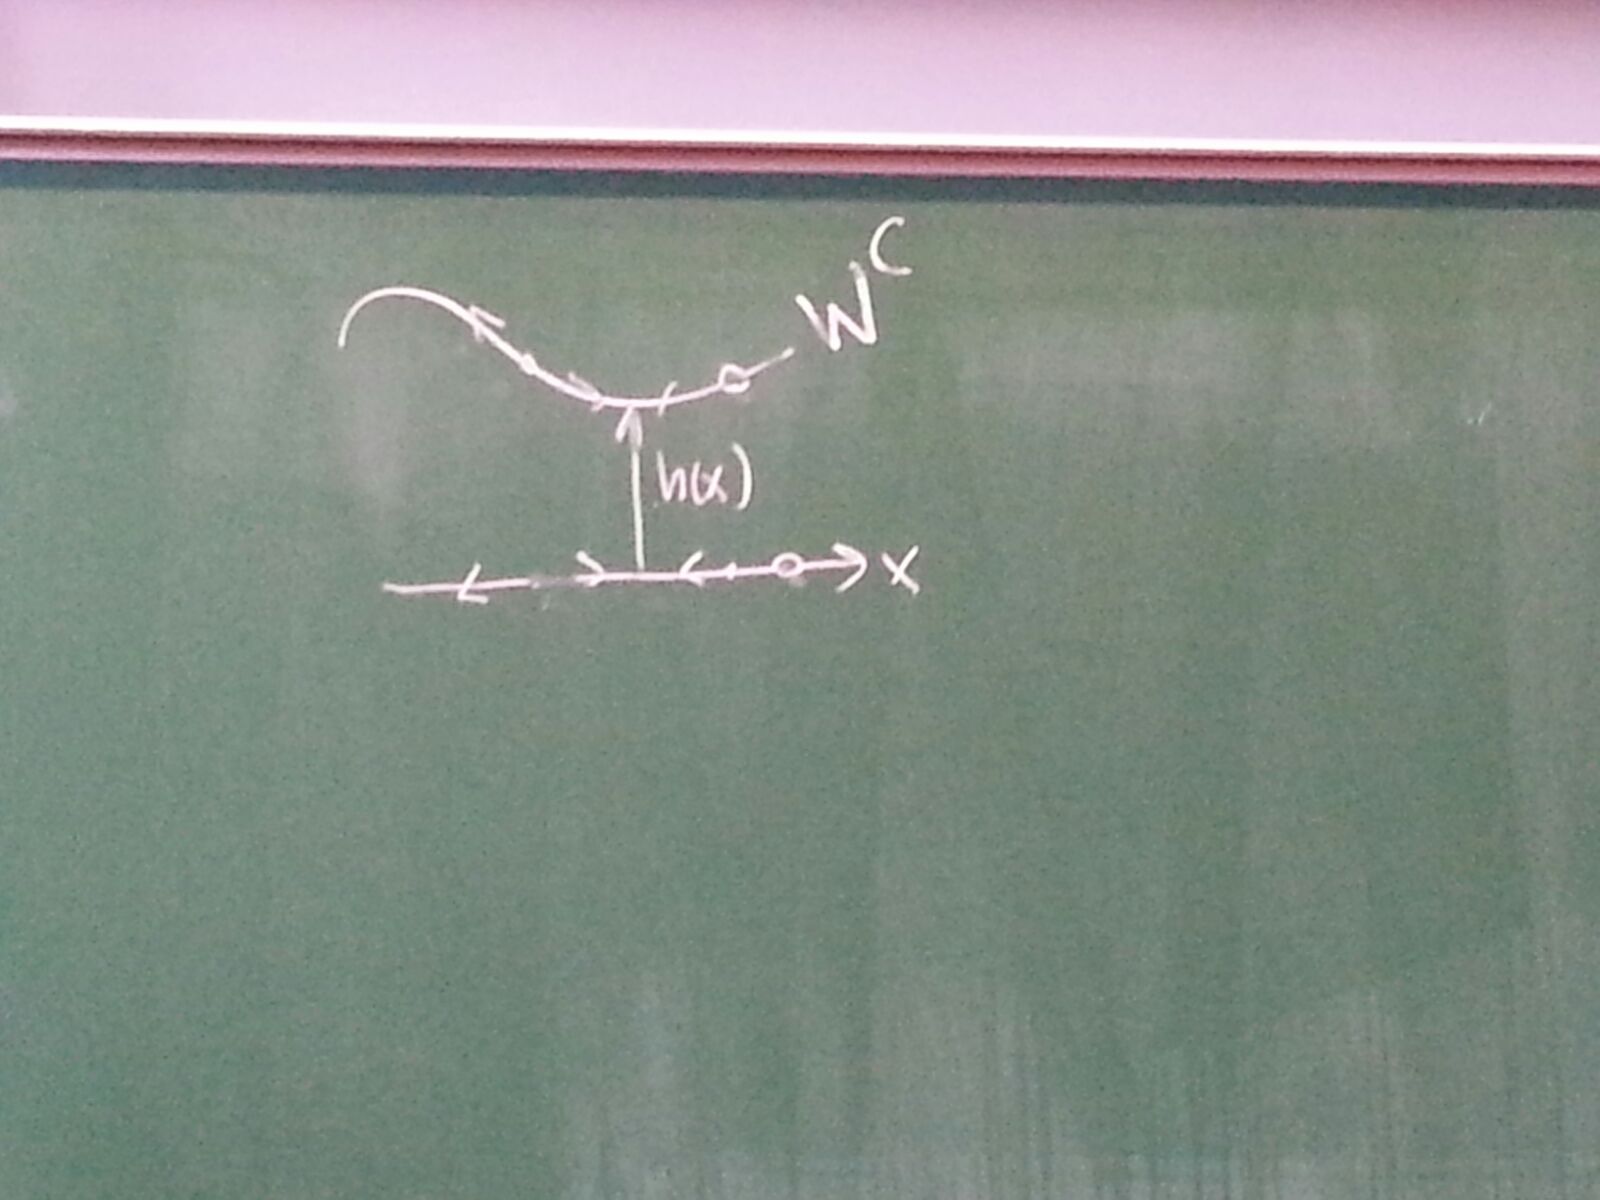 W^C
h(x)
x